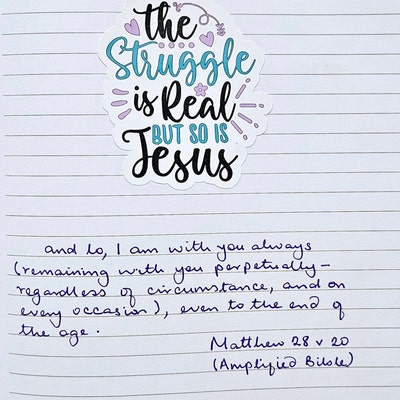 the
Struggle
is Real
BUT SO IS
Jesus
and lo, I am with you always
(remaining with you perpetually -
regardless of circumstance, and on
every occasion), even to the end of
the age.
Matthew 28 v 20
(Amplified Bible)